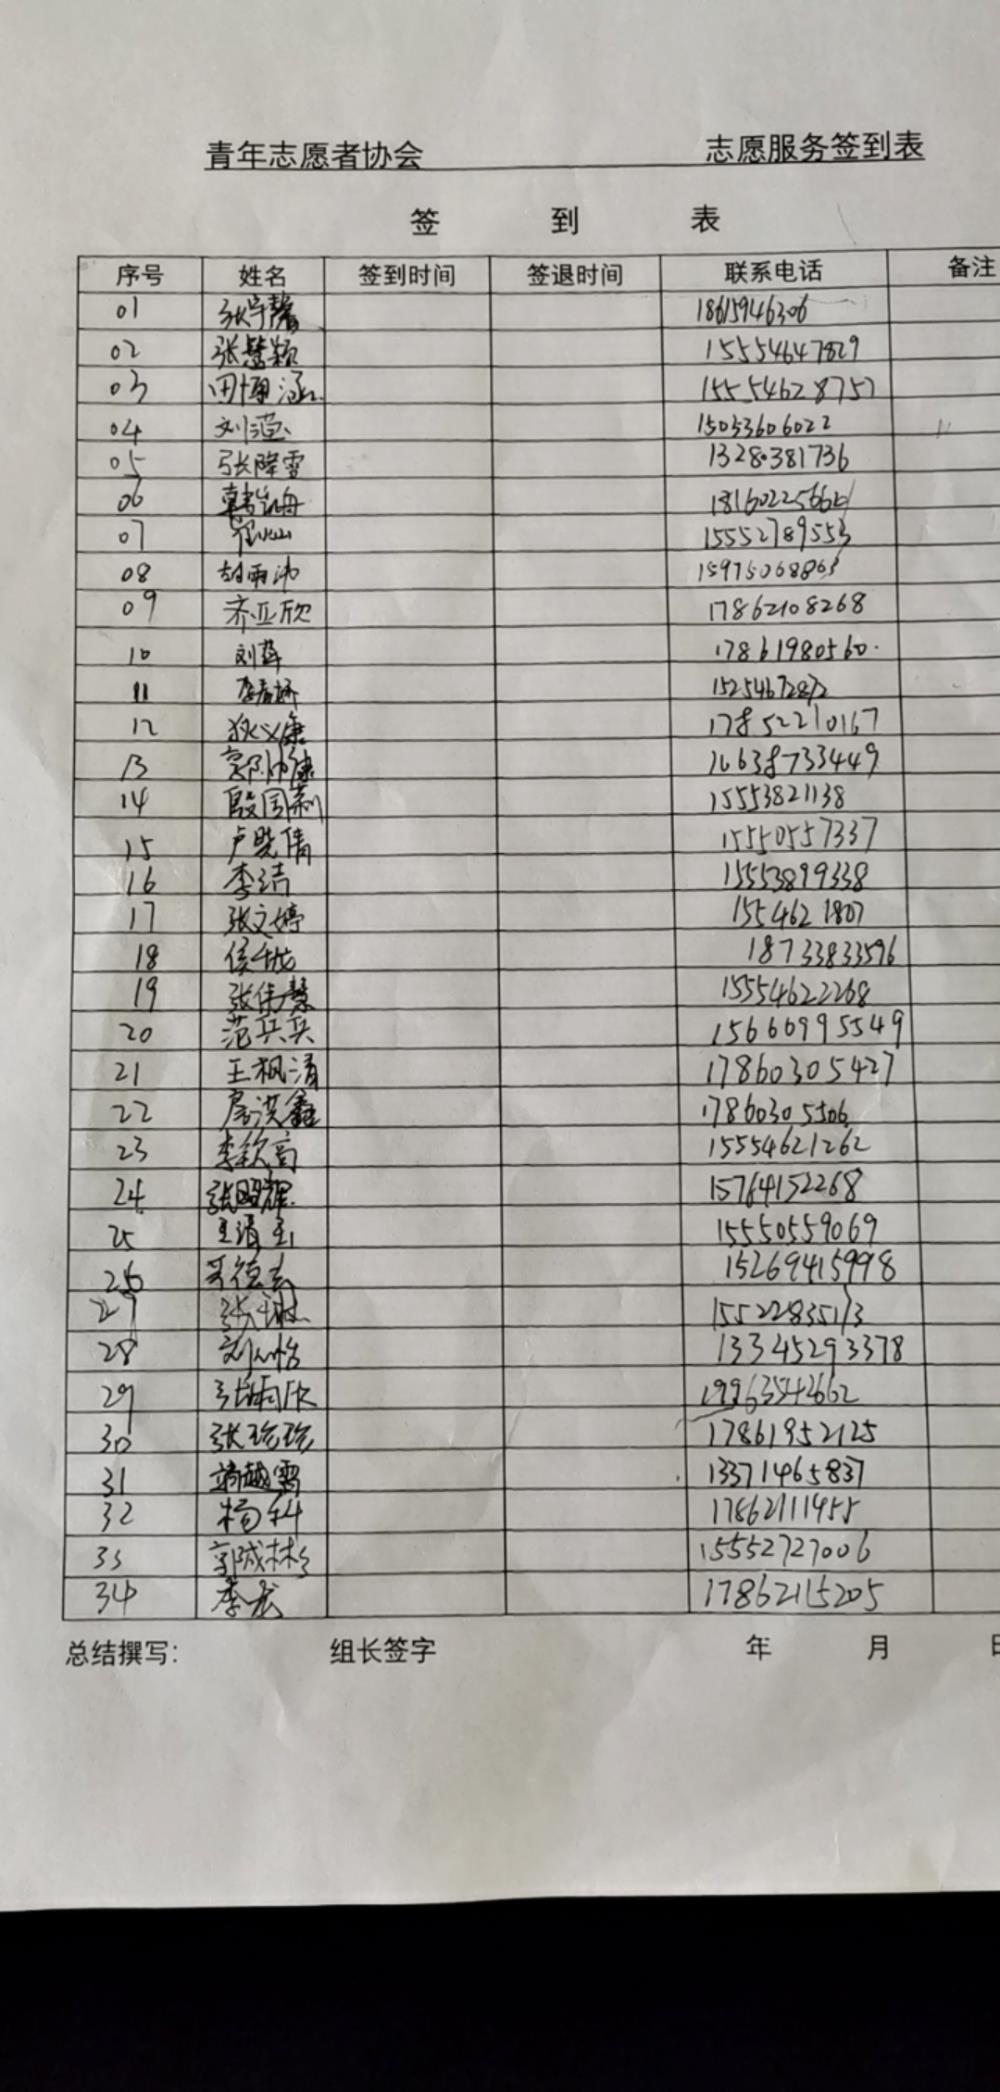 青年志愿者协会 志愿服务签到表
签 到 表
序号 姓名 签到时间 签退时间 联系电话 备注
01 张宇馨 18615946306
02 张慧颖 15554647829
03 田博涵 15554628757
04 刘滢 15053606022
05 张降雪 13280381736
06 韩凯舟 18160225664
07 15552789553
08 胡雨沛 15975068863
09 齐亚欣 17862108268
10 刘萍 17861980560
11 15254672872
12 狄义康 17852210167
13 郭帅康 16638733449
14 殷国莉 15553821138
15 卢晓倩 15550557337
16 李洁 15553899338
17 张文婷 1554621807
18 18733833596
19 张伟慧 15554622268
20 范兵兵 15660995549
21 王枫清 17860305427
22 房洪鑫 17860305506
23 李钦高 15554621262
24 张照耀 15764152268
25 15550559069
26 15269415998
27 张 15522835113
28 刘心怡 13345293378
29 张雨欣 19963542662
30 张珍珍 17861952125
31 越霄 13371465837
32 杨科 17862111455
33 郭成彬 15552727006
34 李龙 17862115205
总结撰写: 组长签字 年 月